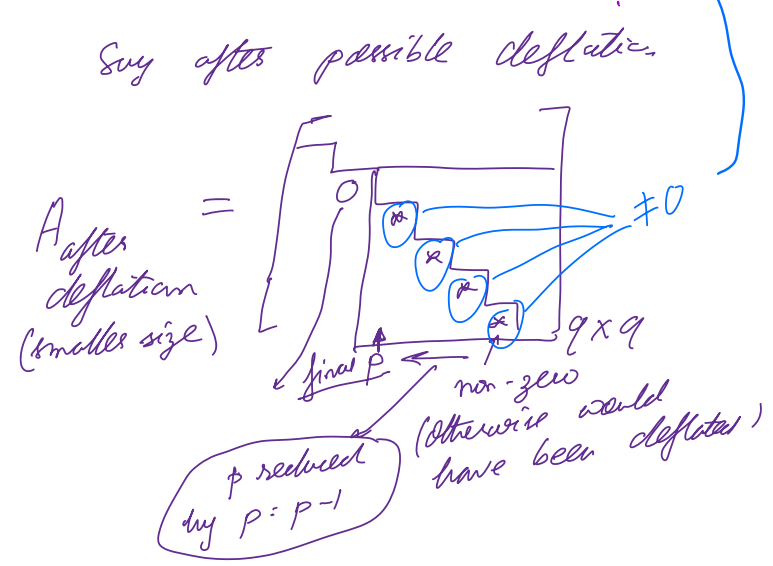 Say after possible deflation
A after deflation (smaller size) =
0
x
x
x
x
≠0
q×q
final p
non-zero
(otherwise would
have been deflated)
p reduced
by p = p-1